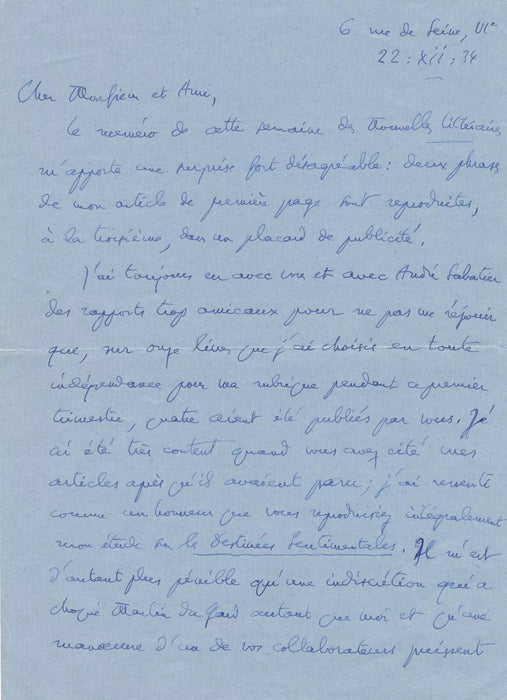 6 rue de Seine, VIe
22 : XII : 34
Cher Monsieur et Ami,
Le numéro de cette semaine des Nouvelles Littéraires
m'apporte une surprise fort désagréable : deux phrases
de mon article de première page sont reproduites,
à la troisième, dans un placard de publicité.
J'ai toujours eu avec vous et avec André Sabatier
des rapports trop amicaux pour ne pas me réjouir
que, sur onze livres que j'ai choisis en toute
indépendance pour ma rubrique pendant ce premier
trimestre, quatre aient été publiés par vous. J'
ai été très content quand vous avez cité mes
articles après qu'il avaient paru ; j'ai ressenti
comme un honneur que vous reproduisiez intégralement
mon étude sur les Destinées Sentimentales. Il m'est
d'autant plus pénible qu'une indiscrétion qui a
choqué Martin du Gard autant que moi et qu'une
manoeuvre d'un de vos collaborateurs puissent